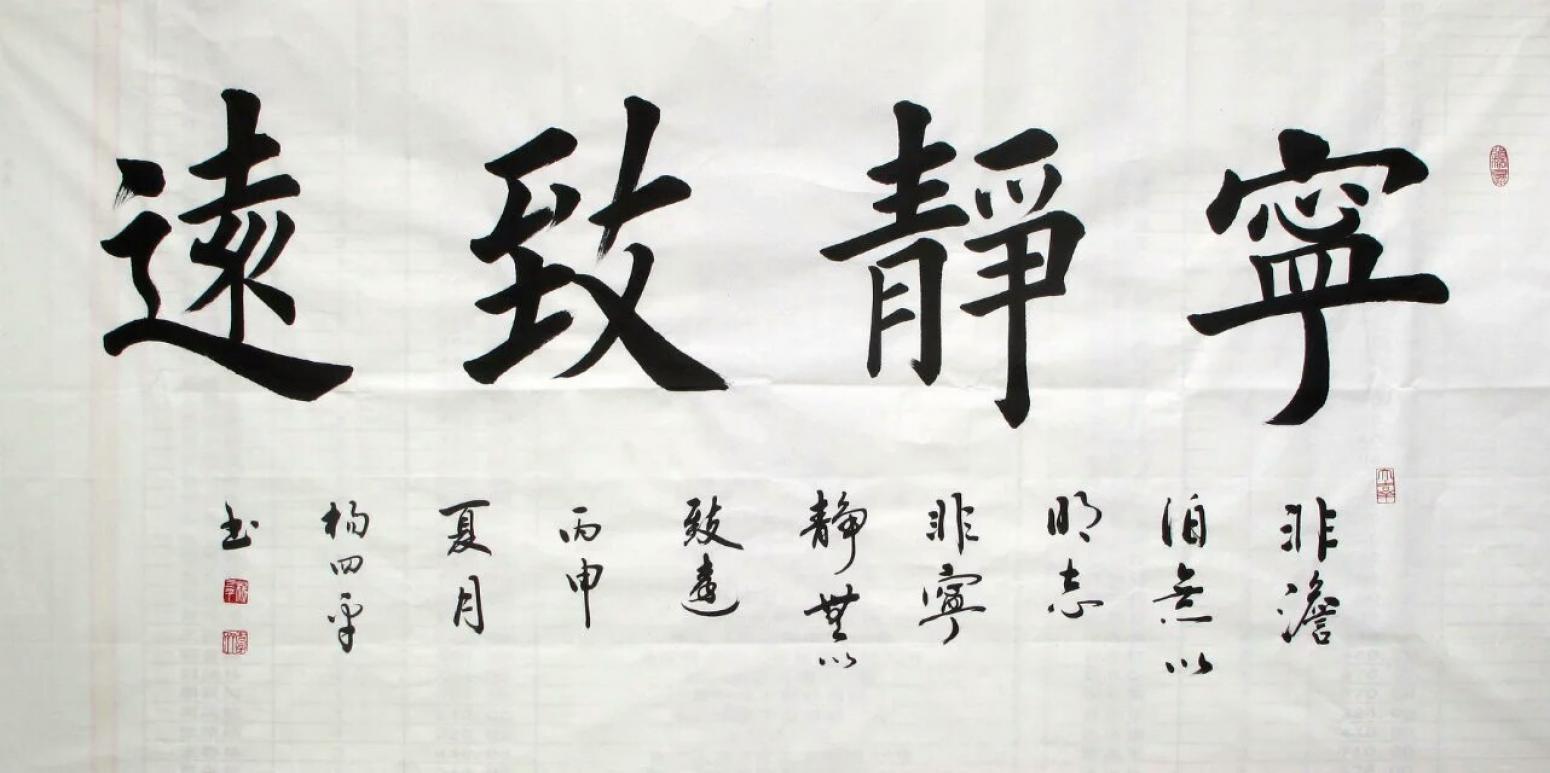 寧靜致遠
非澹
泊無以
明志
非寧
靜無以
致遠
丙申
夏月
楊四平
書